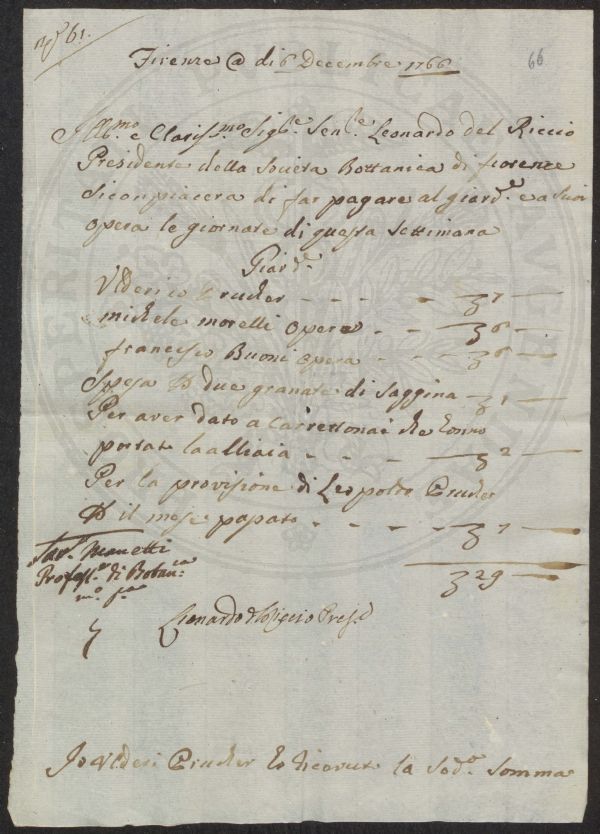 N° 61.
66
Firenze @ di 6 Decembre 1766
Ill:mo e Claris:mo Sig:re Sen:re Leonardo del Riccio
Presidente della Società Bottanica di fiorenze
Si conpiacera di far pagare al giard:e e a suoi
opera le giornate di questa Settimana
Giard:e
Ulderico Prucker - - - - 3 7 —
michele morelli opera - - 3 6 —
francesco Buoni opera - - 3 6 —
Spesa due granate di Saggina - 3 1 —
Per aver dato a Carrettonai che Conno
portat la - - - 3 2 —
Per la provisione di Leopoldo Prucker
il mese papato - - - - 3 7 —
3 29 —
Sav:o Manetti
Profess:re di Botan:ca
m:o p:a
Lionardo del Riccio Pres:e
Jo Ulderi Prucker ho Riceuut la Sod:a Somma